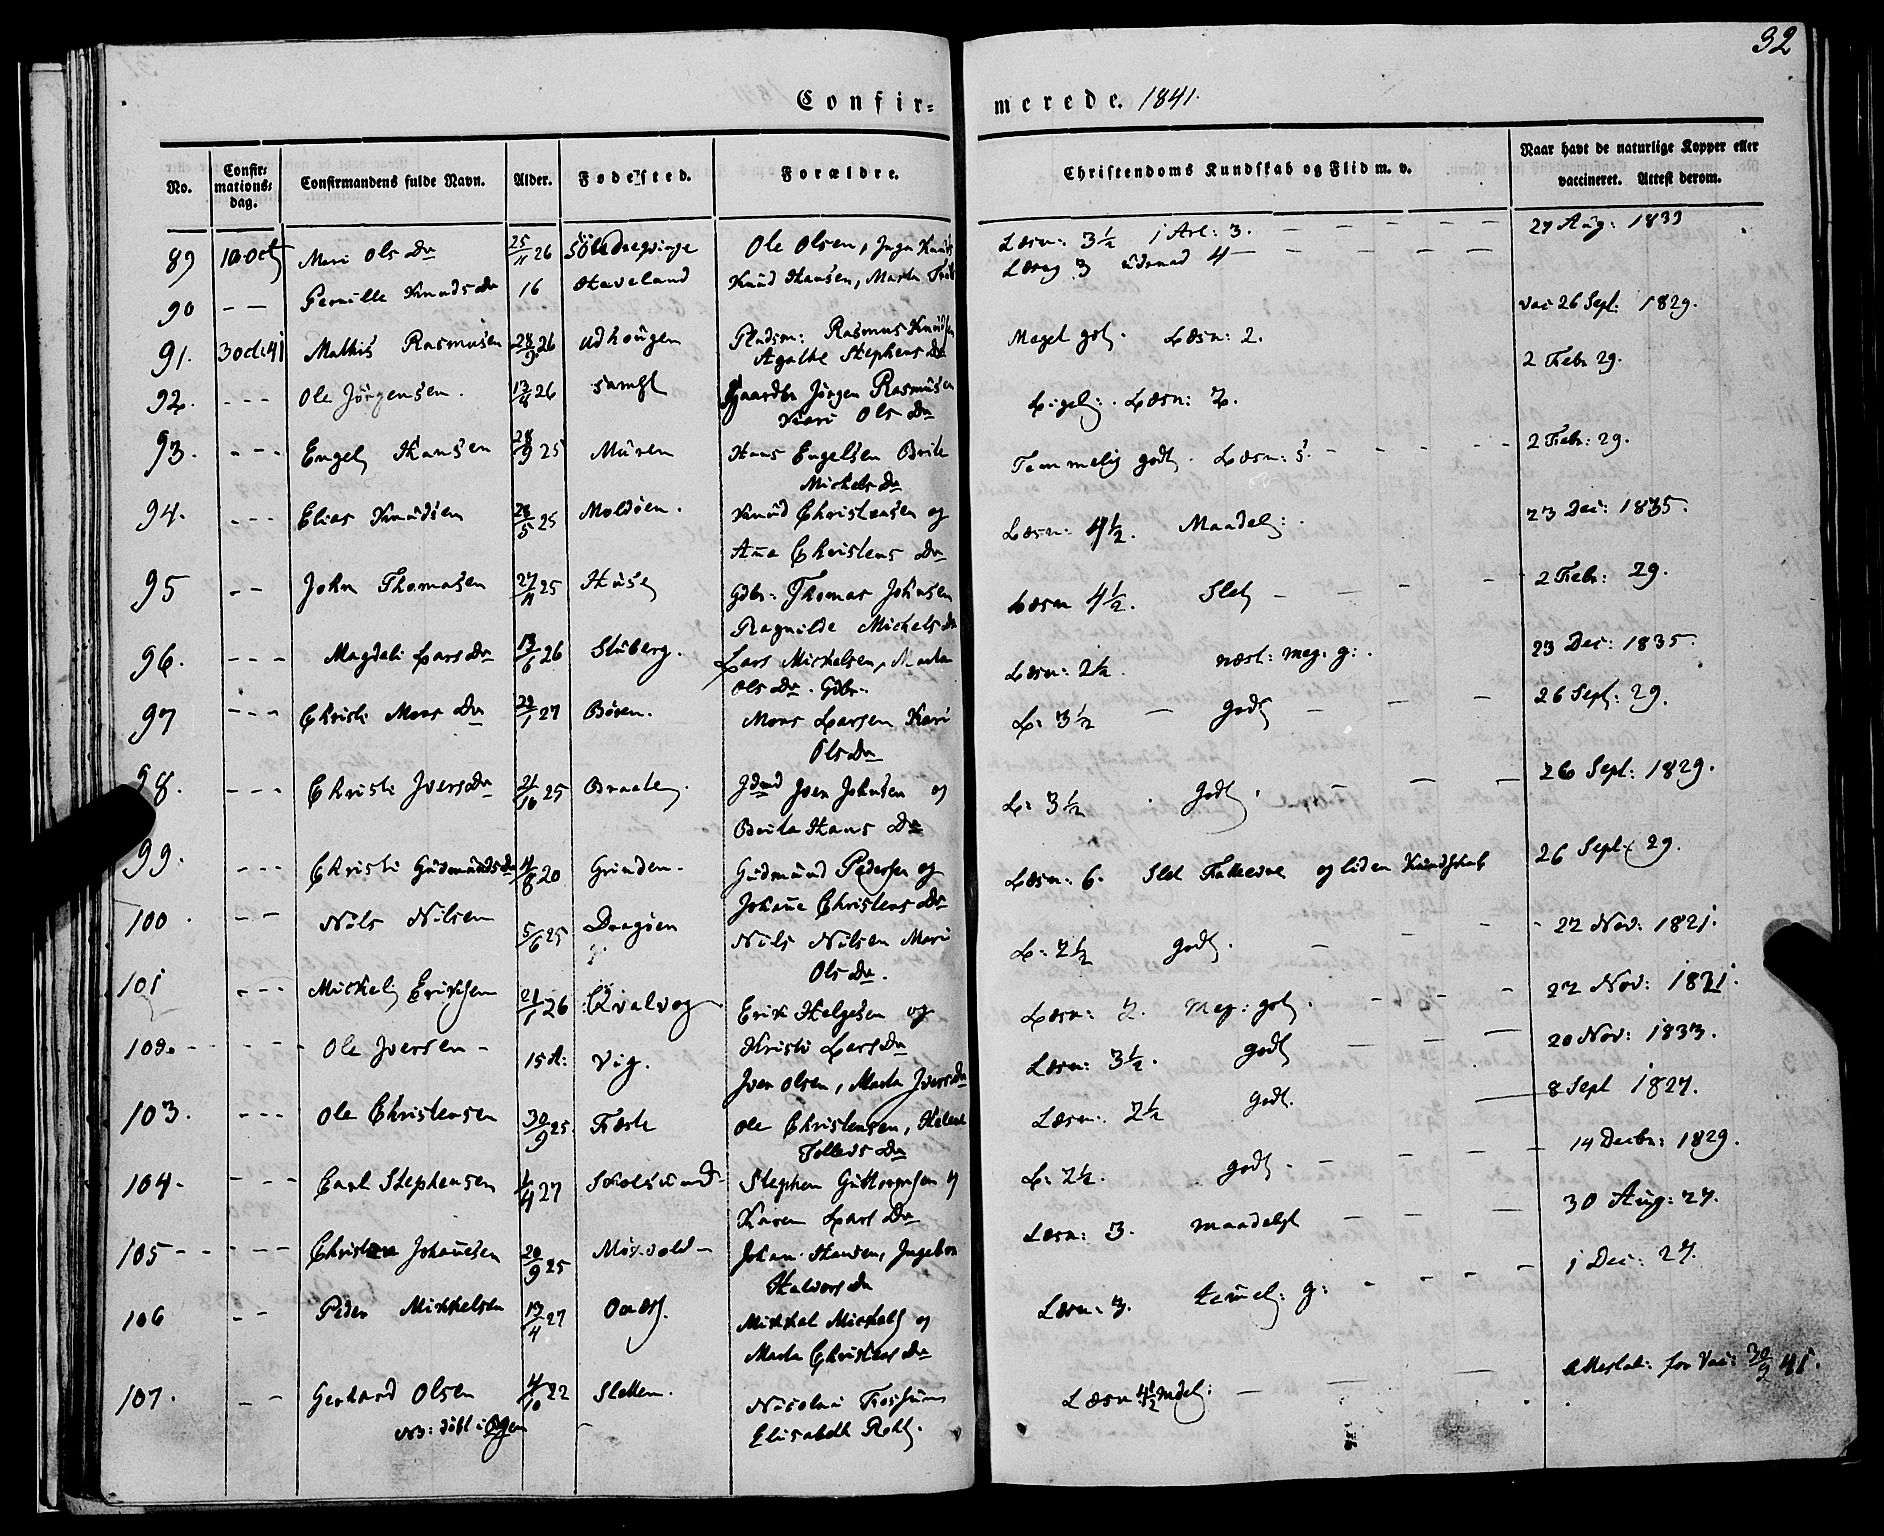 32
Confir= merede. 1841.
No. Confir= mations= dag. Confirmandens fulde Navn. Alder. Fødested. Forældre. Christendoms Kundskab og Flid m. v. Naar havt de naturlige Kopper eller vaccineret. Attest derom.
89 10 Oct Mari Ols Dr 25/11 26 Ole Olsen, Inga Læsn: 3½ 3. 27 Aug: 1833
90 - - Pernille Knuds Dr 16 Haveland Knud Hansen, Marta 3 udenad 4 vac 26 Sept. 1829.
91. 3 Oct: 41 Mathis Rasmusen 28/9 26 Udhougen Pladsm: Rasmus Knudsen Meget got. Læsn: 2. 2 Febr 29.
Agathe Stephens Dr
92. - - - Ole Jörgensen. 26 samst Gaardbr Jörgen Rasmusen Ligel: . Læsn: 2.
Kari Ols Dr
93. - - - Engel Hansen 28/9 25 Muren Hans Engelsen Brite Temmelig godt. Læsn: 3. 2 Febr: 29.
Mickels Dr
94. - - - Elias Knudsen 28/5 25 Moldöen. Knud Christensen og Læsn: 4½. Maadel: . 23 Dec: 1835.
Ane Christens Dr
95 - - John Thomasen 27/11 25 Huse Gdbr: Thomas Johnsen Læsn 4½. Slet 2 Febr: 29.
Ragnilde Mickels Dr
96. - - - Magdeli Lars Dr 13/6 26 Stuberg. Lars Mickelsen, Marta Læsn: 2½. næst: meg: g: . 23 Dec: 1835.
Ols Dr. Gdbr.
97 - - - Christi Mons Dr 29/1 27 Böen. Mons Larsen Kari L: 3½ - Godt 26 Sept: 29.
Ols Dr
98. - - - Christi Ivers Dr 21/10 25 Braate. Gdmd Iver Johnsen og L: 3½ . Godt. 26 Sept: 1829.
Brita Hans Dr
99. - - - Christi Gudmunds Dr 4/8 20 Grinden. Gudmund Pedersen og Læsn: 6. Slet Fatteevne og liden Kundskab 26 Sept: 29.
Johane Christens Dr
100. - - - Nils Nilsen 5/6 25 Dragöen Nils Nilsen Mari L: 2½ godt. 22 Nov: 1821.
Ols Dr.
101 - - - Mickel Eriksen 21/1 26 Kvalvog Erik Helgesen og Læsn: 2. Meg: got. 22 Nov: 1821.
Kristi Lars Dr
102. - - - - Ole Iversen - 15 A: Vig. Iver Olsen, Marta Ivers Dr Læsn: 3½. Godt 20 Nov: 1833.
103. - - - Ole Christensen 30/9 25 Farste Ole Christensen, Læsn: 2½ Godt. 8 Sept 1827.
Tollevs Dr
104. - - - Carl Stephensen 1/4 27 Stephen Guttormsen og L: 2½. godt. 14 Decbr: 1829.
Karen Lars Dr
105 - - - - - Christen Johanesen 20/9 25 Mörvold - Johan: Hansen, Ingebor Læsn: 3. maadelst 30 Aug: 27.
Halvors Dr
106 - - Peder Mikkelsen 13/4 27 Mikkel Mickels og Læsn: 3. temel: g: 1 Dec: 27.
Marta Christens Dr
107. - - Gerhard Olsen 4/10 22 Sletten. Nicolai Læsn 4½ mdel: Attestat: for Vac: 30/9 41.
NB: döbt i Elisabeth